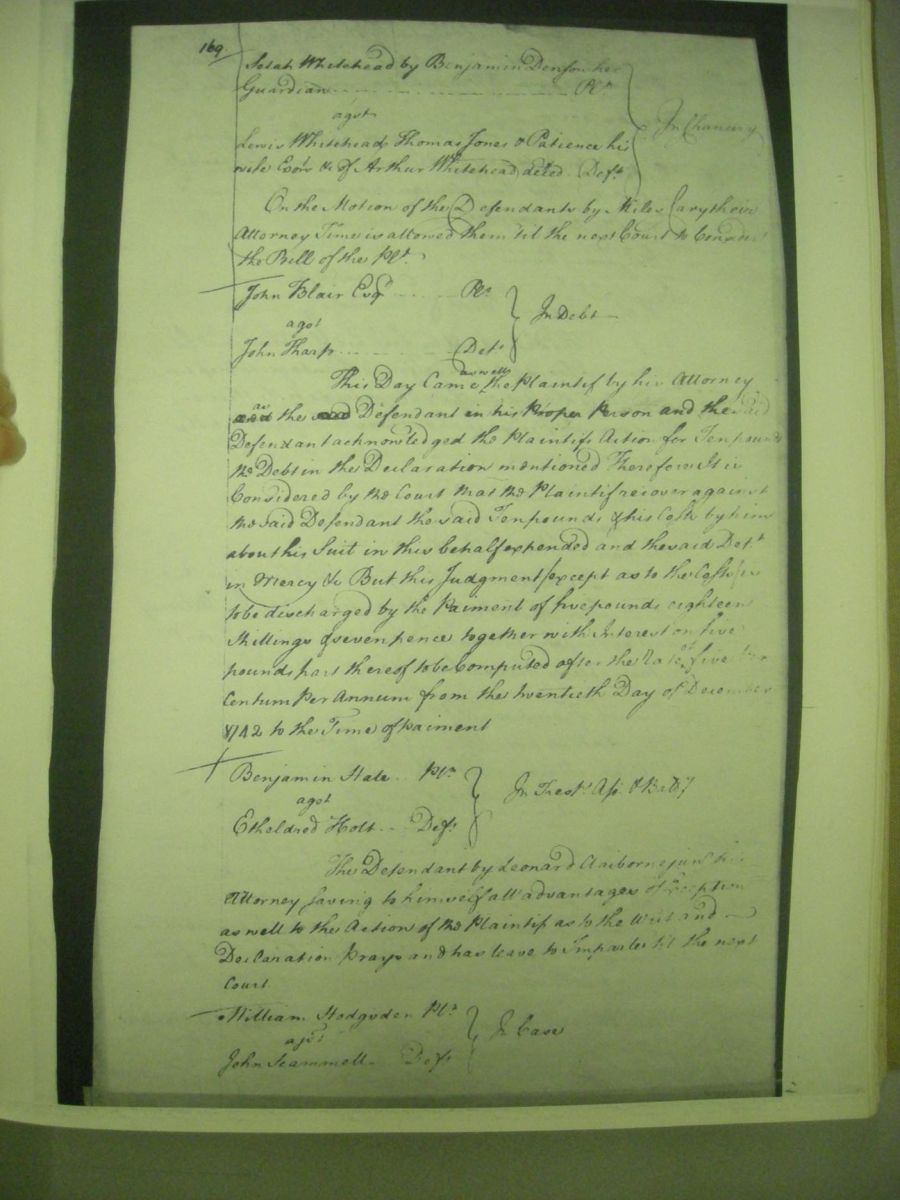 169.
Selah Whitehead by Benjamin Denson her
Guardian Plt.
agst
Lewis Whitehead Thomas Jones & Patience his
wife Exors &c of Arthur Whitehead deced. Deft.
In Chancery
On the Motion of the Defendants by Miles Cary their
Attorney Time is allowed them 'til the next Court to Consider
the Bill of the Plt.
John Blair Esqr Plt.
agst
John Tharp Deft.
In Debt
This Day Came as well the Plaintif by his Attorney
as the Defendant in his Proper Person and the said
Defendant acknowledged the Plaintifs Action for Ten pounds
the Debt in the Declaration mentioned Therefore It is
Considered by the Court that the Plaintif recover against
the said Defendant the said Ten pounds & his Costs by him
about his Suit in this behalf expended and the said Deft.
in Mercy &c But this Judgment (except as to the Costs) is
to be discharged by the Paiment of five pounds eighteen
Shillings & seven pence together with Interest on five
pounds part thereof to be Computed after the Rate of five Per
Centum Per Annum from the twentieth Day of December
1742 to the Time of paiment
Benjamin Hale Plt.
agst
Etheldred Holt Deft.
In Tresp. Ass. & Batt'y
The Defendant by Leonard Claiborne junr his
Attorney saving to himself all advantages of Exception
as well to the Action of the Plaintif as to the Writ and
Declaration Prays and has leave to Imparle til the next
Court
William Hodgsden Plt.
agst
John Scammell Deft.
In Case
2